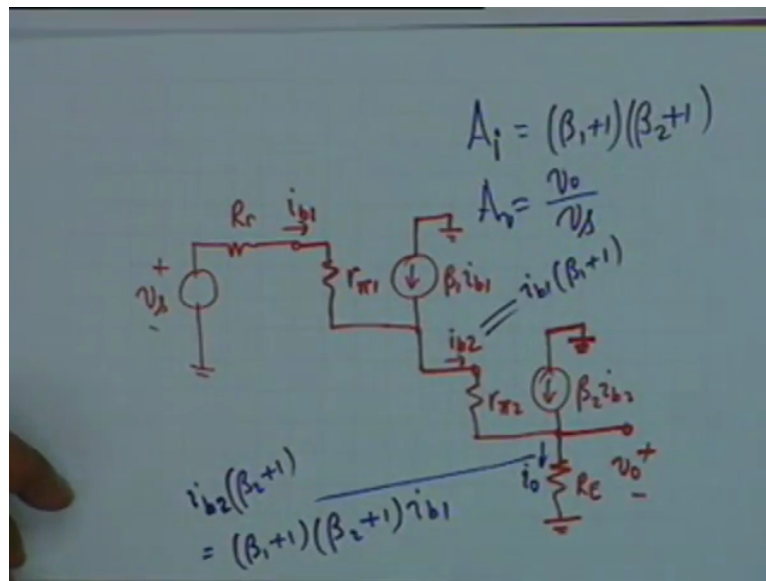 Aᵢ = (β₁+1)(β₂+1)
Aᵥ = v₀/vₛ
i_b1
r_π1
β₁i_b1
i_b1(β₁+1)
vₛ
+
-
i_b2
r_π2
β₂i_b2
i₀
v₀
+
-
i_b2(β₂+1)
= (β₁+1)(β₂+1)i_b1